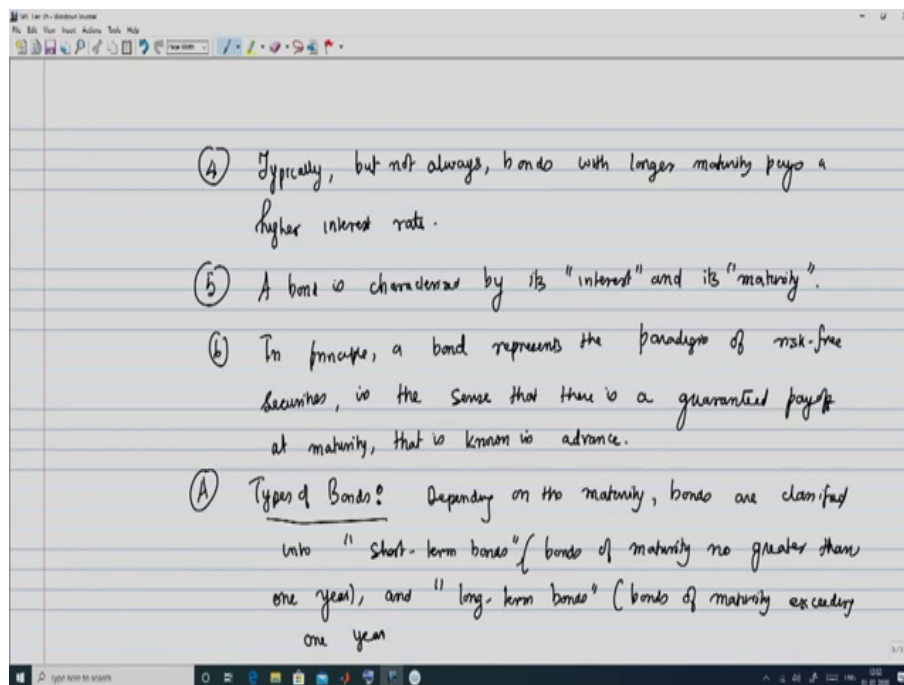 File Edit View Insert Actions Tools Help
Page Width
④ Typically, but not always, bonds with longer maturity pays a
higher interest rate.
⑤ A bond is characterized by its "interest" and its "maturity".
⑥ In principle, a bond represents the paradigm of risk-free
securities, in the sense that there is a guaranteed payoff
at maturity, that is known in advance.
Ⓐ Types of Bonds: Depending on the maturity, bonds are classified
into "short-term bonds" (bonds of maturity no greater than
one year), and "long-term bonds" (bonds of maturity exceeding
one year
Type here to search